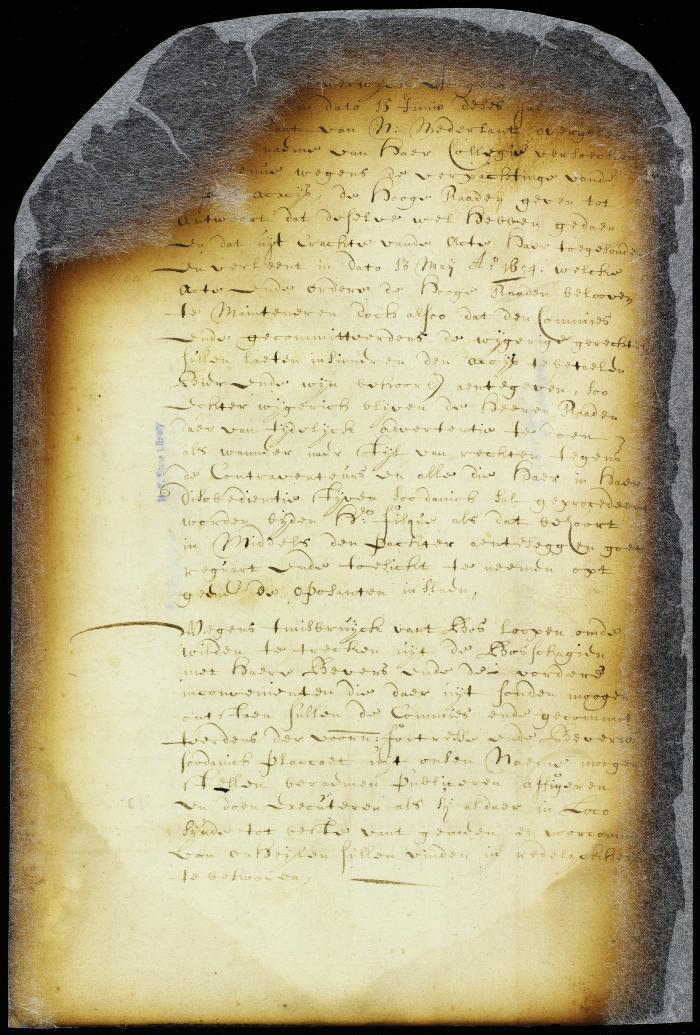 in dato 15 Junio deses
van N: Nederlant
naeme van haer Collegie versoecken
wegens de verpachtinge vande
accijs, de hooge Raaden geven tot
antwoort dat deselve wel hebben gedaen
en dat uijt crachte vande acte haer toegesonden
en verleent in dato 13 May Ao. 1654: welcke
acte ende ordere de hooge Raaden belooven
te Mainteneren doch alsoo dat den Commies
ende gecommitteerdens de wijgerige gerechten
sullen laeten insinueren den accijs te betaelen
bier ende wijn behoorl: aentegeven, soo
echter wijgerich blijven de heeren Raaden
daer van tijdelijck advertentie te doen
als wanneer naer stijl van rechten tegens
de Contraventeurs en alle die haer in haere
disobedientie stijven soodanich sal geprocedeert
worden bijden Hr. fisque als dat behoort
in Middels den pachter aenteseggen goet
reguart ende toesicht te neemen opt
geene de oposanten inslaen,
Wegens tmisbruijck vant Bos loopen omde
wilden te trecken uijt de Bosschagien
met haere Bevers ende de vordere
inconvenienten die daer uijt souden moogen
ontstaen sullen de Commies ende gecommit
teerdens der voorn: fortresse ende Beverw
soodanich placcaet uijt onsen Naeme moogen
stellen beraemen publiceren affigeren
en doen executeren als sij aldaer in Loco
sijnde tot beste vant gemeen en voorcom
van onheijlen sullen vinden in redelijckheijt
te behooren,
N.Y. State Library